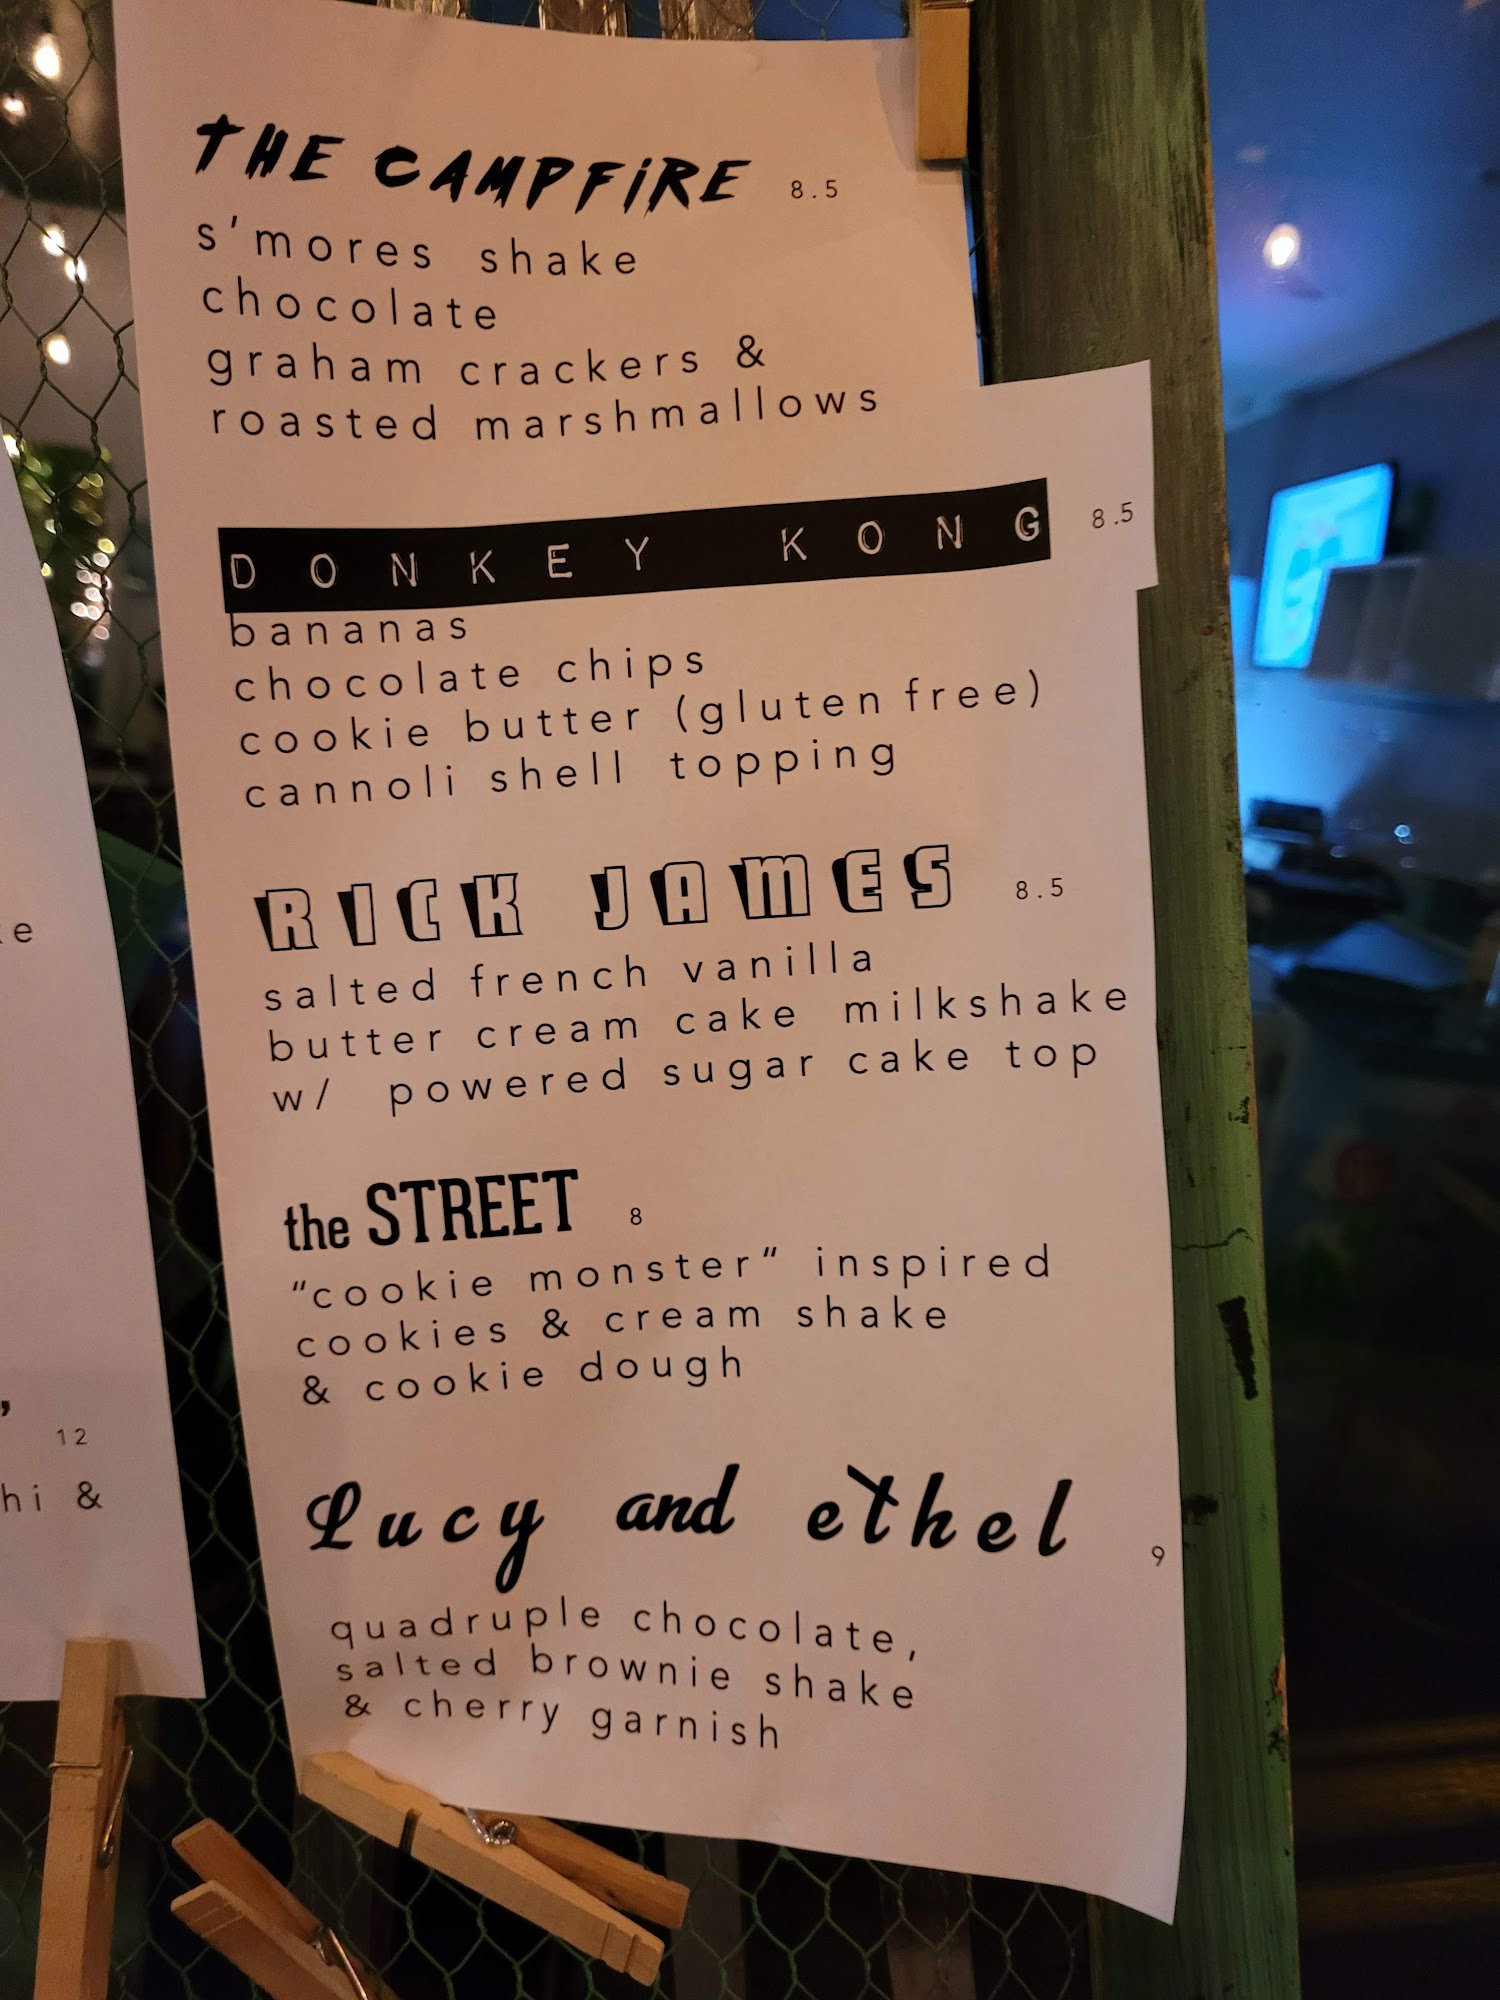 THE CAMPFIRE 8.5
s'mores shake
chocolate
graham crackers &
roasted marshmallows
DONKEY KONG 8.5
bananas
chocolate chips
cookie butter (gluten free)
cannoli shell topping
RICK JAMES 8.5
salted french vanilla
butter cream cake milkshake
w/ powered sugar cake top
the STREET 8
"cookie monster" inspired
cookies & cream shake
& cookie dough
Lucy and ethel 9
quadruple chocolate,
salted brownie shake
& cherry garnish
12
&